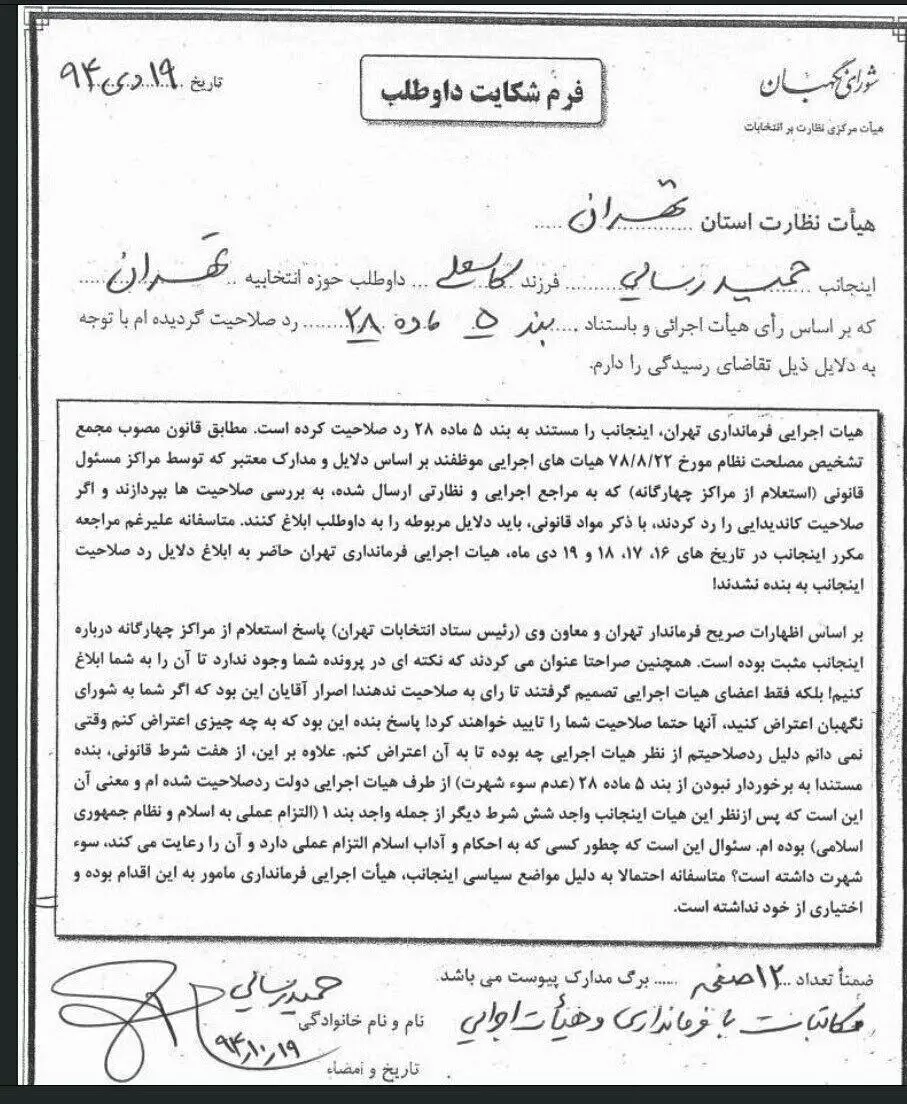 شورای نگهبان
هیأت مرکزی نظارت بر انتخابات
فرم شکایت داوطلب
تاریخ ۱۹ دی ۹۴
هیأت نظارت استان تهران
اینجانب حمید رسایی فرزند داوطلب حوزه انتخابیه تهران
که بر اساس رأی هیأت اجرائی و باستناد بند ۵ ماده ۲۸ رد صلاحیت گردیده ام با توجه
به دلایل ذیل تقاضای رسیدگی را دارم.
هیات اجرایی فرمانداری تهران، اینجانب را مستند به بند ۵ ماده ۲۸ رد صلاحیت کرده است. مطابق قانون مصوب مجمع
تشخیص مصلحت نظام مورخ ۷۸/۸/۲۲ هیات های اجرایی موظفند بر اساس دلایل و مدارک معتبر که توسط مراکز مسئول
قانونی (استعلام از مراکز چهارگانه) که به مراجع اجرایی و نظارتی ارسال شده، به بررسی صلاحیت ها بپردازند و اگر
صلاحیت کاندیدایی را رد کردند، با ذکر مواد قانونی، باید دلایل مربوطه را به داوطلب ابلاغ کنند. متاسفانه علیرغم مراجعه
مکرر اینجانب در تاریخ های ۱۶، ۱۷، ۱۸ و ۱۹ دی ماه، هیات اجرایی فرمانداری تهران حاضر به ابلاغ دلایل رد صلاحیت
اینجانب به بنده نشدند!
بر اساس اظهارات صریح فرماندار تهران و معاون وی (رئیس ستاد انتخابات تهران) پاسخ استعلام از مراکز چهارگانه درباره
اینجانب مثبت بوده است. همچنین صراحتا عنوان می کردند که نکته ای در پرونده شما وجود ندارد تا آن را به شما ابلاغ
کنیم! بلکه فقط اعضای هیات اجرایی تصمیم گرفتند تا رای به صلاحیت ندهند! اصرار آقایان این بود که اگر شما به شورای
نگهبان اعتراض کنید، آنها حتما صلاحیت شما را تایید خواهند کرد! پاسخ بنده این بود که به چه چیزی اعتراض کنم وقتی
نمی دانم دلیل ردصلاحیتم از نظر هیات اجرایی چه بوده تا به آن اعتراض کنم. علاوه بر این، از هفت شرط قانونی، بنده
مستندا به برخوردار نبودن از بند ۵ ماده ۲۸ (عدم سوء شهرت) از طرف هیات اجرایی دولت ردصلاحیت شده ام و معنی آن
این است که پس ازنظر این هیات اینجانب واجد شش شرط دیگر از جمله واجد بند ۱ (التزام عملی به اسلام و نظام جمهوری
اسلامی) بوده ام. سئوال این است که چطور کسی که به احکام و آداب اسلام التزام عملی دارد و آن را رعایت می کند، سوء
شهرت داشته است؟ متاسفانه احتمالا به دلیل مواضع سیاسی اینجانب، هیأت اجرایی فرمانداری مامور به این اقدام بوده و
اختیاری از خود نداشته است.
ضمناً تعداد ۱۲ صفحه برگ مدارک پیوست می باشد.
مکاتبات با فرمانداری و هیأت اجرایی
حمید رسایی
نام و نام خانوادگی
۹۴/۱۰/۱۹
تاریخ و امضاء